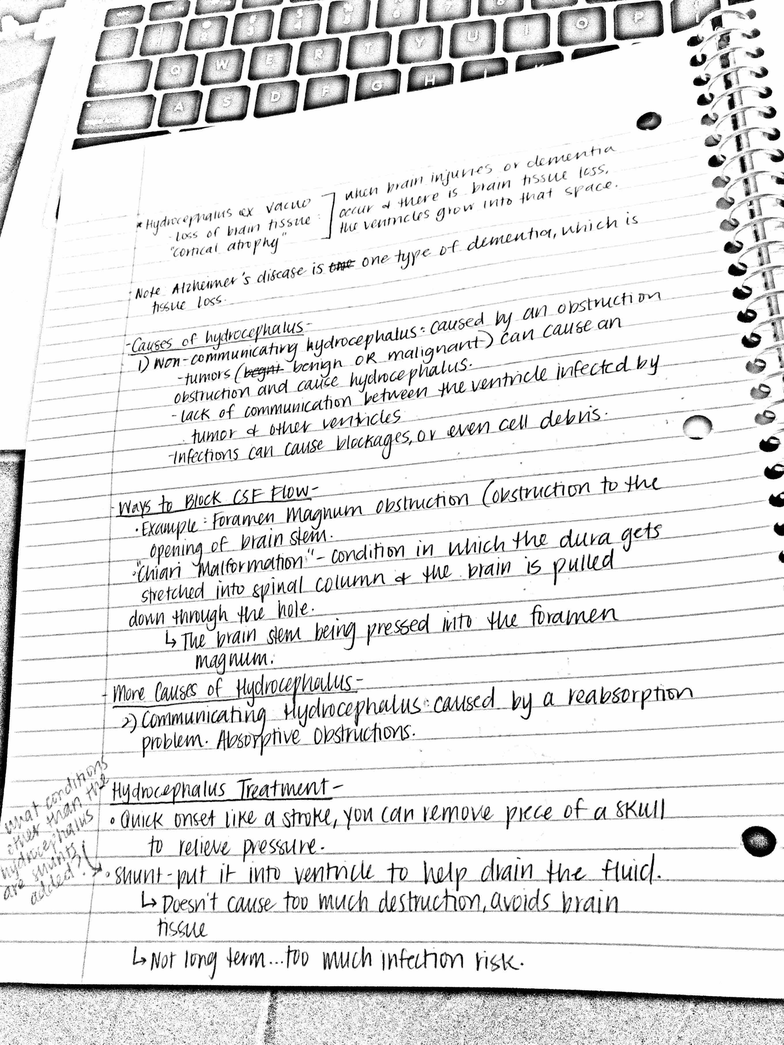 Q W E R T Y U I O P
A S D F G H
*Hydrocephalus ex vacuo
-loss of brain tissue
"cortical atrophy"
when brain injuries or dementia
occur & there is brain tissue loss,
the ventricles grow into that space.
·Note Alzheimer's disease is one type of dementia, which is
tissue loss.
-Causes of hydrocephalus-
1) Non-communicating hydrocephalus: caused by an obstruction
-tumors (benign OR malignant) can cause an
obstruction and cause hydrocephalus.
-lack of communication between the ventricle infected by
tumor & other ventricles
-Infections can cause blockages, or even cell debris.
-Ways to Block CSF Flow-
·Example: Foramen Magnum obstruction (obstruction to the
opening of brain stem.
·"Chiari Malformation"- condition in which the dura gets
stretched into spinal column & the brain is pulled
down through the hole.
↳ The brain stem being pressed into the foramen
magnum.
-More Causes of Hydrocephalus-
2) Communicating Hydrocephalus: caused by a reabsorption
problem. Absorptive Obstructions.
Hydrocephalus Treatment-
• Quick onset like a stroke, you can remove piece of a skull
to relieve pressure.
what conditions
other than the
hydrocephalus
are shunts
added?!
• Shunt-put it into ventricle to help drain the fluid.
↳ Doesn't cause too much destruction, avoids brain
tissue
↳ Not long term...too much infection risk.